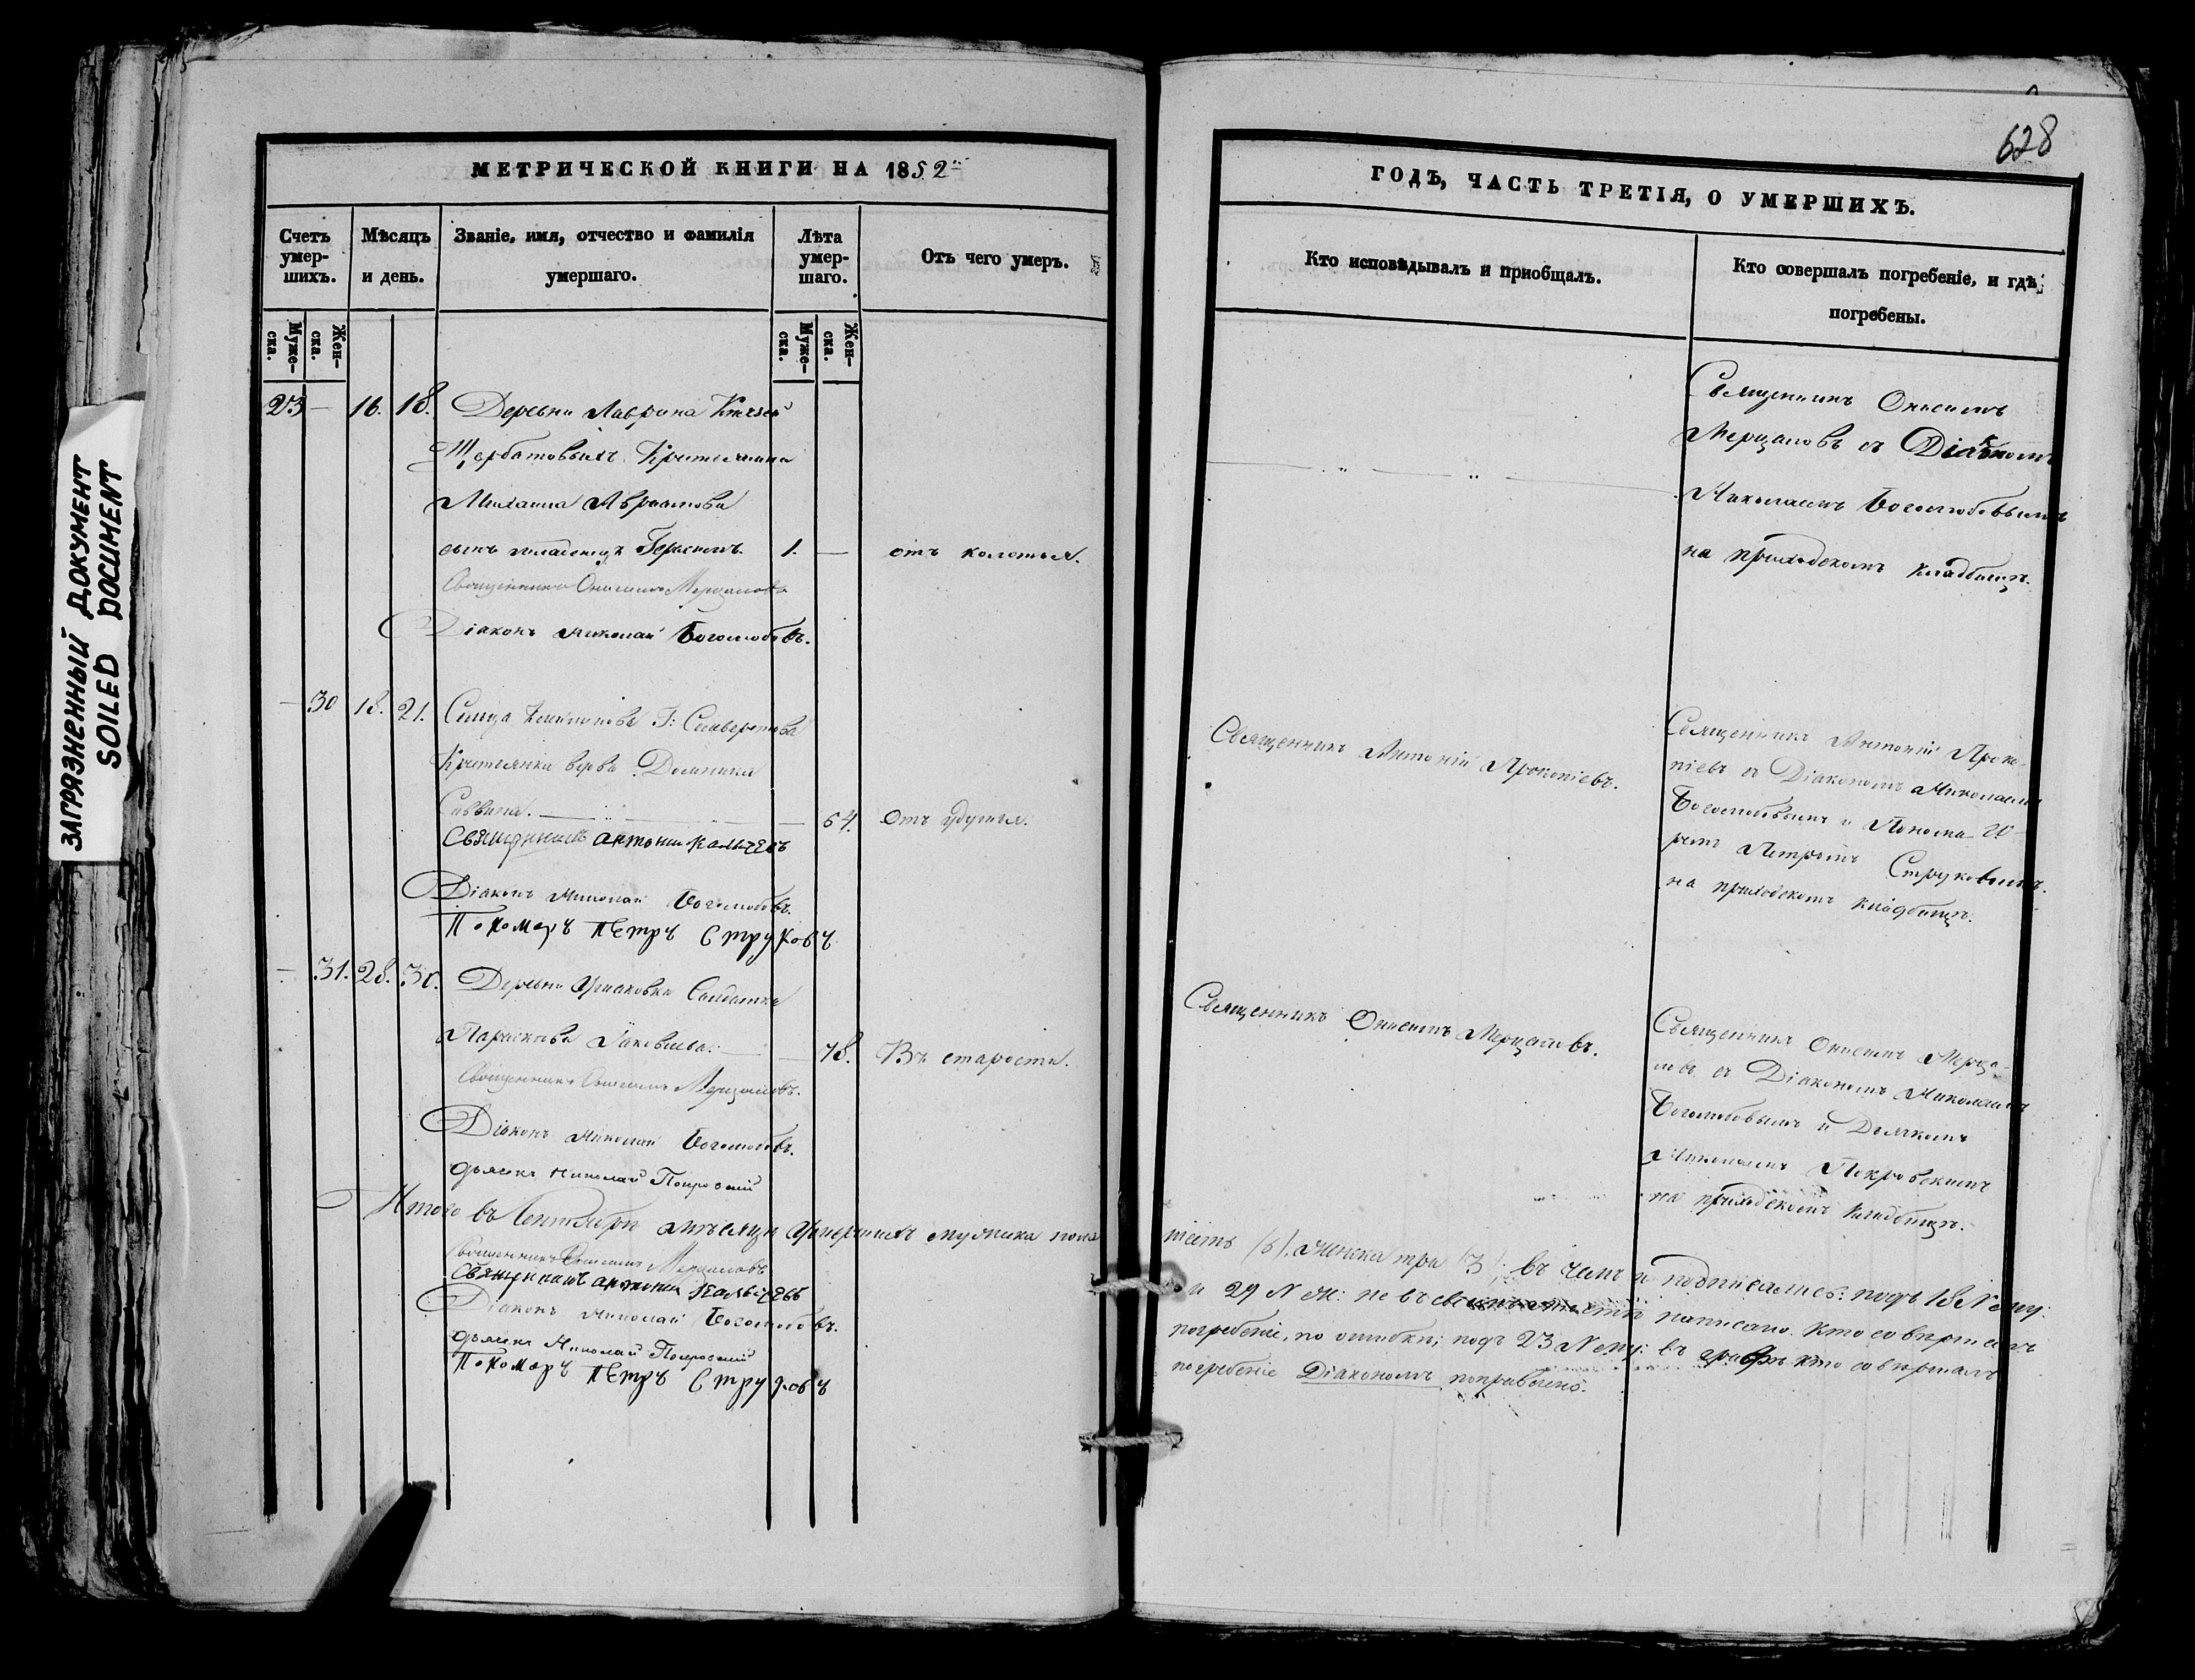 ЗАГРЯЗНЕННЫЙ ДОКУМЕНТ
SOILED DOCUMENT
МЕТРИЧЕСКОЙ КНИГИ НА 1852й
Счетъ умер-шихъ.
Муже-ска.
Жен-ска.
Мѣсяцъ и день.
Званіе, имя, отчество и фамилія
умершаго.
Лѣта умер-шаго.
Муже-ска.
Жен-ска.
Отъ чего умеръ.
23 — 16. 18. Деревни Лаврина Князей
Щербатовыхъ Крестьянина
Михаила Авраамова
сынъ младенецъ 1. — отъ колотья.
Священникъ Онисимъ Мерцаловъ
Діаконъ Николай Боголюбовъ.
— 30 18. 21. Сельца
Крестьянка вдова Домникія
Саввина. — 64. Отъ удушья.
Священникъ антоний
Діаконъ Николай Боголюбовъ.
Пономарь Петръ Струковъ
— 31. 28. 30. Деревни Солдатка
Параскева Іаковлева. — 78. Въ старости.
Священникъ Онисимъ Мерцаловъ.
Діаконъ Николай Боголюбовъ.
дьячекъ Николай Покровскій
Итого въ Сентябрѣ мѣсяцѣ Умершихъ мужеска пола
Священникъ Онисимъ Мерцаловъ
Священникъ антоний
Діаконъ Николай Боголюбовъ.
дьячекъ Николай Покровскій
Пономарь Петръ Струковъ
628
ГОДЪ, ЧАСТЬ ТРЕТІЯ, О УМЕРШИХЪ.
Кто исповѣдывалъ и приобщалъ.
Кто совершалъ погребеніе, и гдѣ
погребены.
Священникъ Онисимъ
Мерцаловъ съ Діакономъ
Николаемъ Боголюбовымъ
на приходскомъ кладбищѣ.
Священникъ Антоній Прокопіевъ.
Священникъ Антоній Проко-
піевъ съ Діакономъ Николаемъ
Боголюбовымъ и Понома-
ремъ Петромъ Струковымъ.
на приходскомъ кладбищѣ.
Священникъ Онисимъ Мерцаловъ.
Священникъ Онисимъ Мерца-
ловъ съ Діакономъ Николаемъ
Боголюбовымъ и Дьячкомъ
Николаемъ Покровскимъ
на приходскомъ кладбищѣ.
шесть (6). Женска три (3); въ чемъ и подписались: подъ 18 N му:
и 29 N ж: не въ написано кто совершалъ
погребеніе, по ошибки; подъ 23 N му: въ графѣ кто совершалъ
погребеніе Діакономъ поправлено.